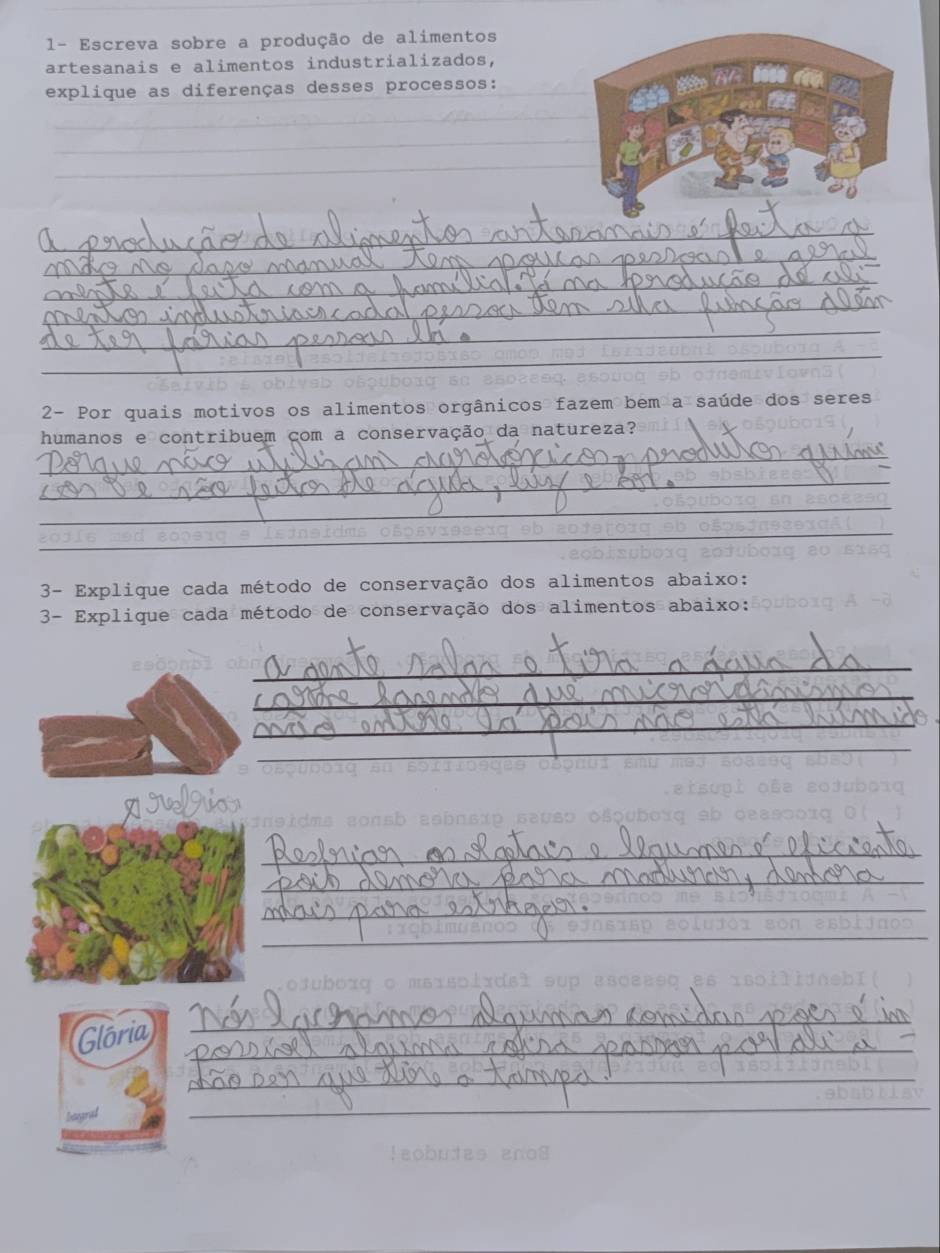 1- Escreva sobre a produção de alimentos
artesanais e alimentos industrializados,
explique as diferenças desses processos:
a produção de alimentos artesanais é feita a
mão no caso manual tem poucas pessoas e geral
mente é feita com a família. Já na produção de ali-
mentos industriais cada pessoa tem sua função além
de ter várias pessoas lá.
2- Por quais motivos os alimentos orgânicos fazem bem a saúde dos seres
humanos e contribuem com a conservação da natureza?
Porque não utilizam agrotóxicos, produtos quími-
cos e são feitos de água, luz e sol.
3- Explique cada método de conservação dos alimentos abaixo:
3- Explique cada método de conservação dos alimentos abaixo:
a gente salga e tira a água da
carne fazendo que microrganismos
não entre lá pois não está húmido.
resfriar
Resfriar os vegetais e legumes é eficiente
pois demora para madurar, demora
mais para estragar.
Glória
Integral
Nós lacramos algumas comidas pois é im
possível alguma coisa passar por ali a-
não ser que tire a tampa.